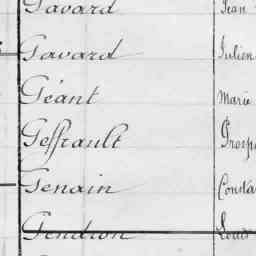 Gavard Jean
Gavard Julien
Géant Marie
Geffrault Prosp
Genain Consta
Gendron Louis